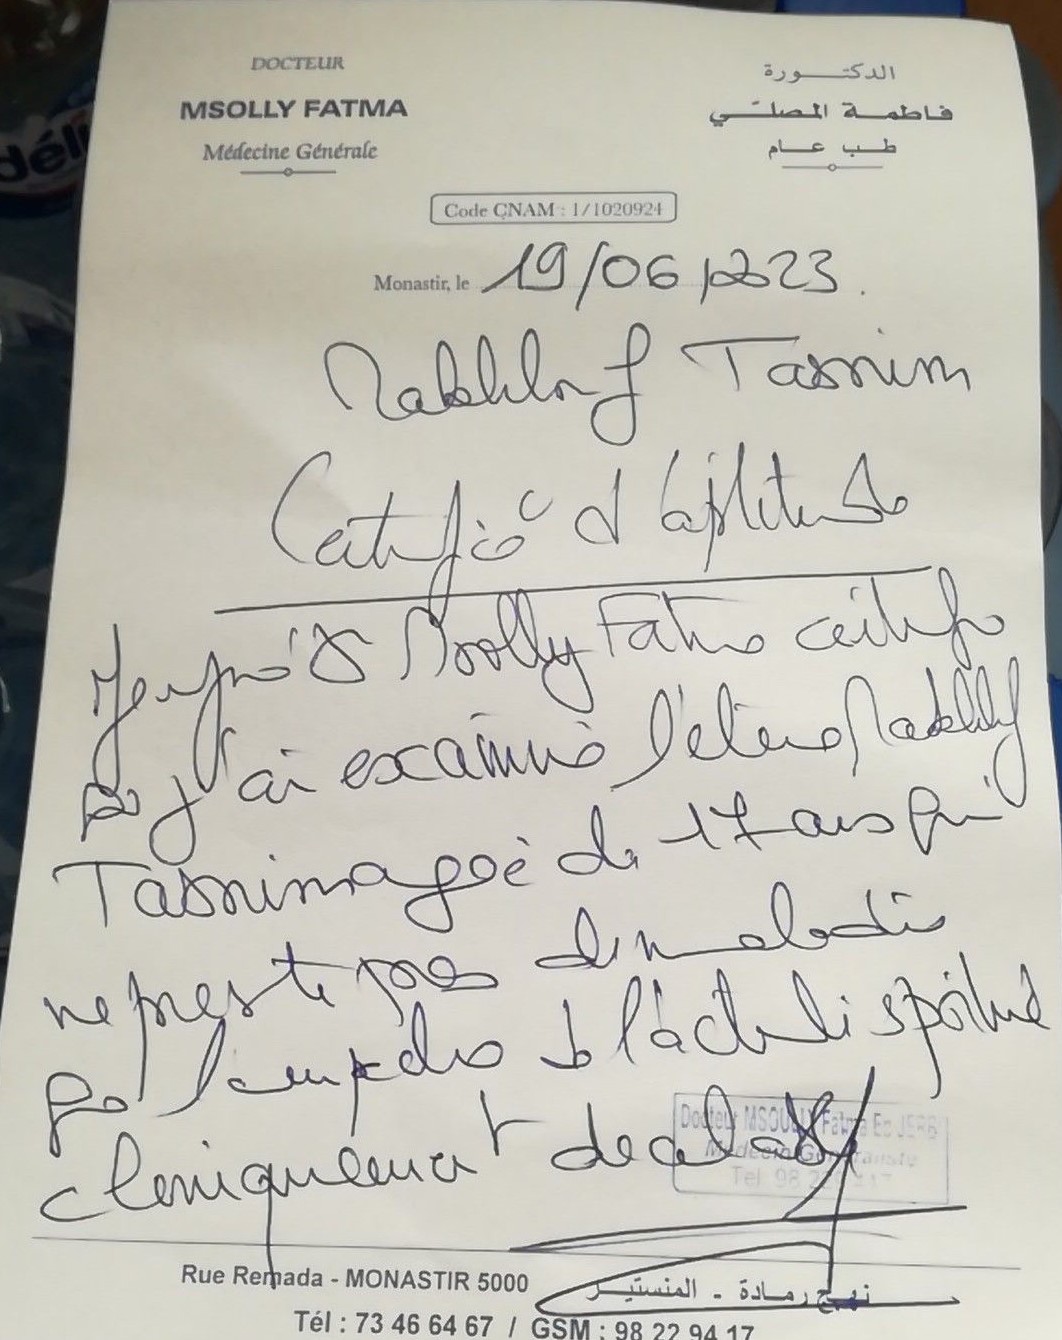 DOCTEUR
MSOLLY FATMA
Médecine Générale
الدكتورة
فاطمة المصلي
طب عام
Code CNAM : 1/1020924
Monastir, le 19/06/2023.
Makhlouf Tasnim
Certificat d'aptitude
Msolly Fatma certifie
j'ai examiné l'élève Makhlouf
Tasnim agée de 17 ans qui
ne présente pas de maladie
l'empêche à l'activité sportive
cliniquement décelable
Docteur MSOLLY Fatma Ep JERB
Médecin Généraliste
Rue Remada - MONASTIR 5000
نهج رمادة - المنستير
Tél : 73 46 64 67 / GSM : 98 22 94 17